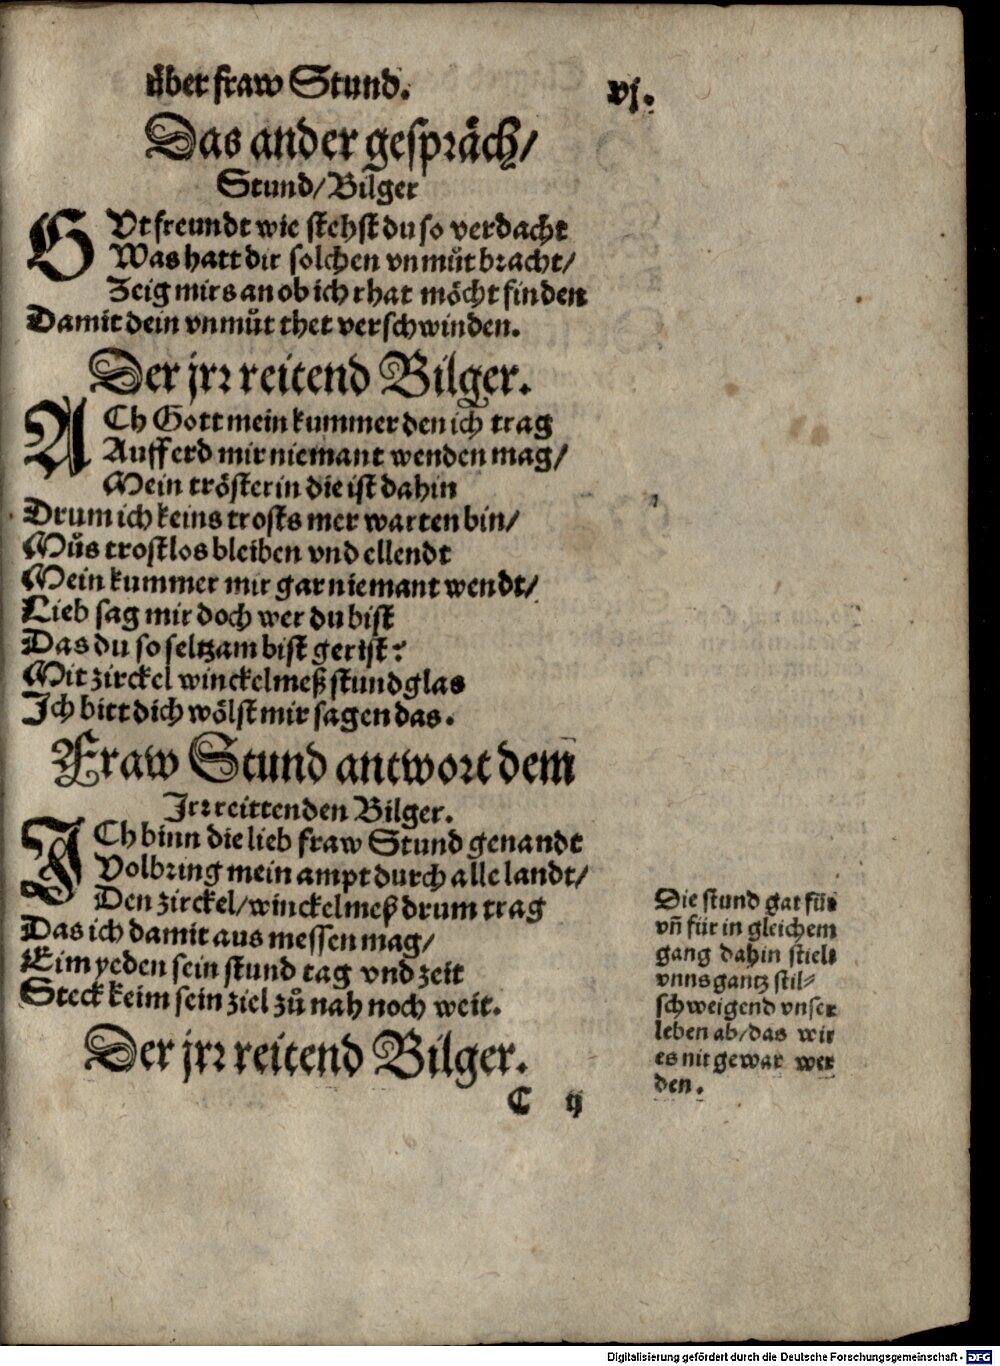 über fraw Stund. vj.
Das ander gespräch/
Stund/Bilger
GVt freundt wie stehst du so verdacht
Was hatt dir solchen vnmůt bracht/
Zeig mirs an ob ich rhat möcht finden
Damit dein vnmůt thet verschwinden.
Der jrr reitend Bilger.
ACh Gott mein kummer den ich trag
Auff erd mir niemant wenden mag/
Mein trösterin die ist dahin
Drum ich keins trosts mer warten bin/
Můs trostlos bleiben vnd ellendt
Mein kummer mir gar niemant wendt/
Lieb sag mir doch wer du bist
Das du so seltzam bist gerist?
Mit zirckel winckelmeß stundglas
Ich bitt dich wölst mir sagen das.
Fraw Stund antwort dem
Jrr reittenden Bilger.
ICh binn die lieb fraw Stund genandt
Volbring mein ampt durch alle landt/
Den zirckel/winckelmeß drum trag
Das ich damit aus messen mag/
Eim yeden sein stund tag vnd zeit
Steck keim sein ziel zů nah noch weit.
Der jrr reitend Bilger.
C ij
Die stund gat für
vñ für in gleichem
gang dahin stielt
vnns gantz stil-
schweigend vnser
leben ab/das wir
es nit gewar wer
den.
Digitalisierung gefördert durch die Deutsche Forschungsgemeinschaft - DFG